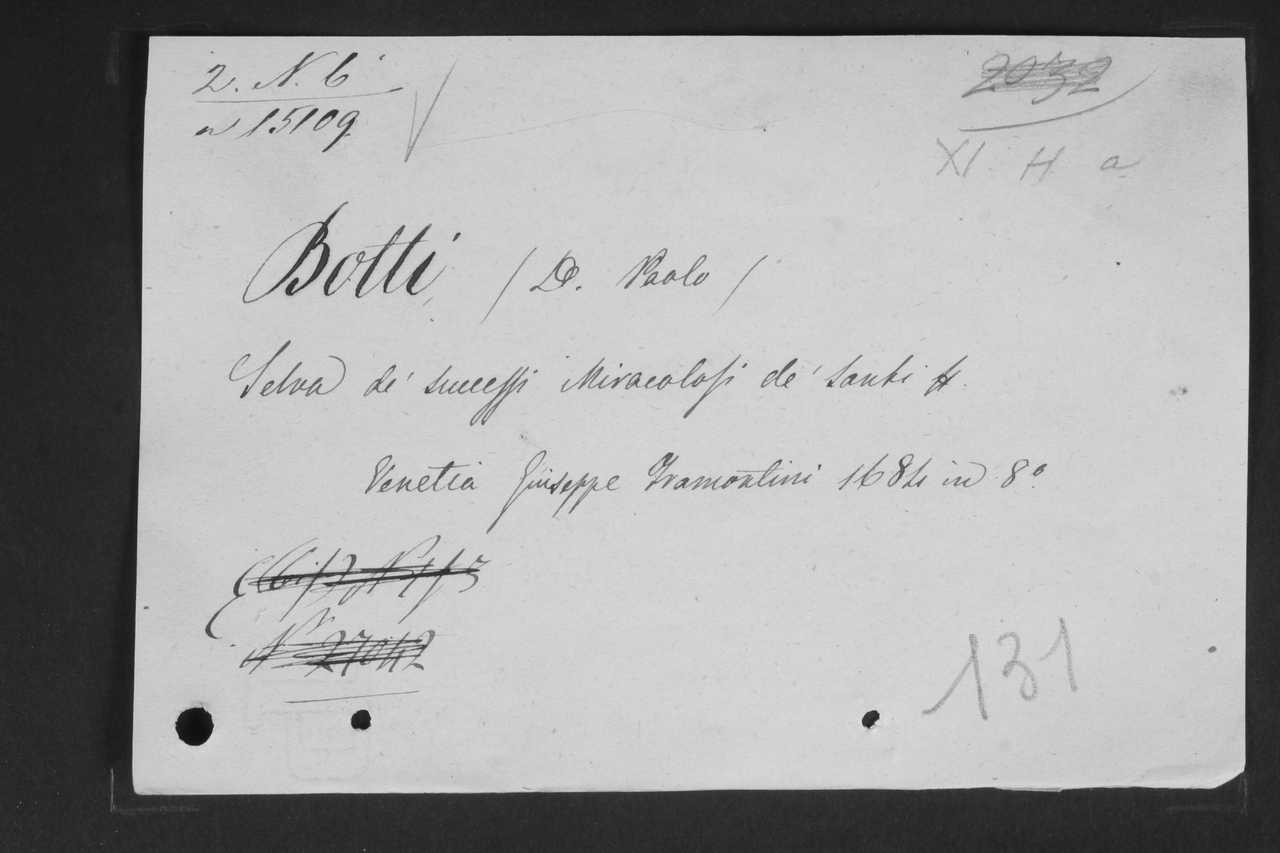 2. N. 6
a 15109
2032
XI. H. a
Botti (D. Paolo)
Selva de' successi Miracolosi de' Santi
Venetia Giuseppe Tramontini 1684 in 8º
N 27042
131